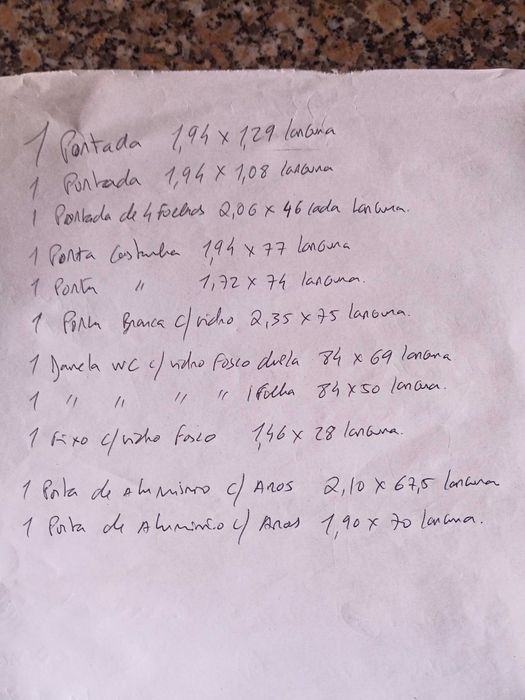 1 Portada 1,94 x 1,29 largura
1 Portada 1,94 x 1,08 largura
1 Portada de 4 folhas 2,06 x 46 cada largura.
1 Porta Castanha 1,94 x 77 largura
1 Porta " 1,72 x 74 largura.
1 Porta Branca c/ vidro 2,35 x 75 largura.
1 Janela WC c/ vidro fosco dupla 84 x 69 largura
1 " " " " 1 folha 84 x 50 largura.
1 Fixo c/ vidro fosco 1,46 x 28 largura.
1 Porta de Aluminio c/ Aros 2,10 x 67,5 largura
1 Porta de Aluminio c/ Aros 1,90 x 70 largura.